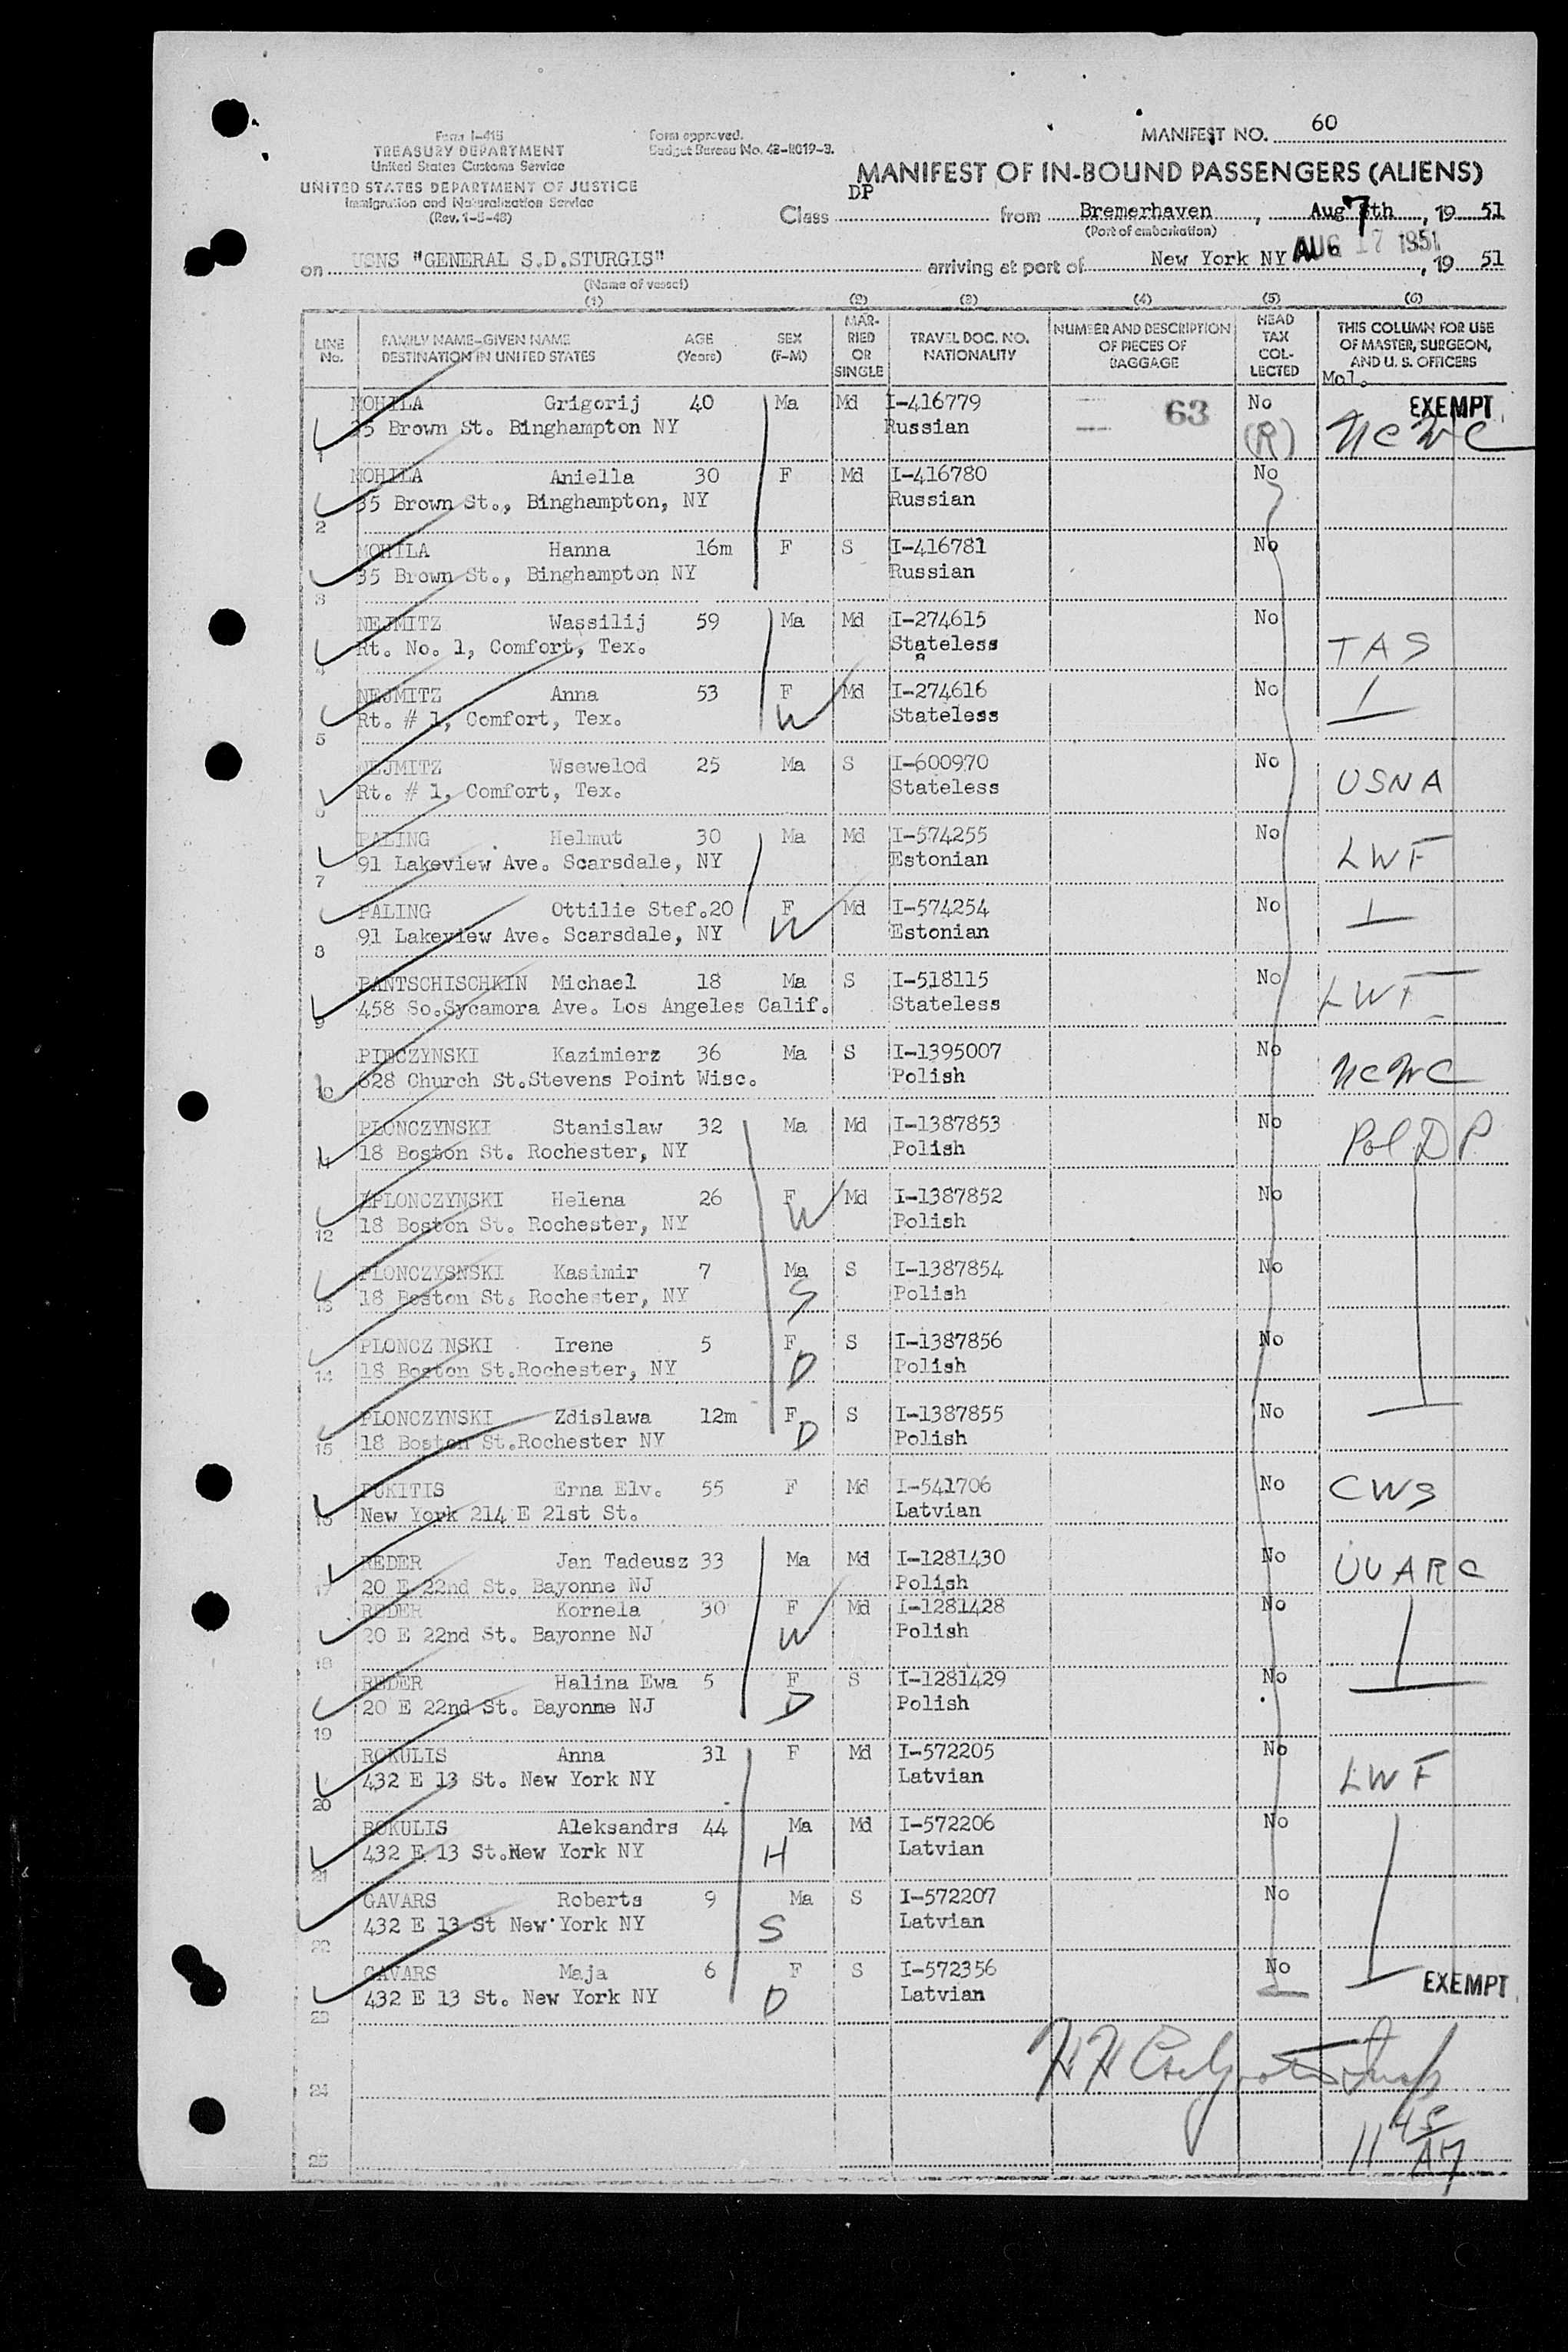 Form I-415
TREASURY DEPARTMENT
United States Customs Service
UNITED STATES DEPARTMENT OF JUSTICE
Immigration and Naturalization Service
(Rev. 1-5-48)
Form approved.
Budget Bureau No. 43-R019-3.
MANIFEST NO. 60
MANIFEST OF IN-BOUND PASSENGERS (ALIENS)
Class DP from Bremerhaven, Aug 7th, 19 51
(Port of embarkation)
on USNS "GENERAL S.D.STURGIS" arriving at port of New York NY AUG 17 1951, 19 51
(Name of vessel)
(1) (2) (3) (4) (5) (6)
LINE No. FAMILY NAME-GIVEN NAME DESTINATION IN UNITED STATES AGE (Years) SEX (F-M) MARRIED OR SINGLE TRAVEL DOC. NO. NATIONALITY NUMBER AND DESCRIPTION OF PIECES OF BAGGAGE HEAD TAX COLLECTED THIS COLUMN FOR USE OF MASTER, SURGEON, AND U. S. OFFICERS
Mol.
MOHILA Grigorij 40 Ma Md I-416779 63 No EXEMPT
1 35 Brown St. Binghampton NY Russian (R) NCWC
MOHILA Aniella 30 F Md I-416780 No
2 35 Brown St., Binghampton, NY Russian
MOHILA Hanna 16m F S I-416781 No
3 35 Brown St., Binghampton NY Russian
NEJMITZ Wassilij 59 Ma Md I-274615 No
4 Rt. No. 1, Comfort, Tex. Stateless TAS
NEJMITZ Anna 53 F Md I-274616 No
5 Rt. # 1, Comfort, Tex. W Stateless
NEJMITZ Wsewelod 25 Ma S I-600970 No
6 Rt. # 1, Comfort, Tex. Stateless USNA
PALING Helmut 30 Ma Md I-574255 No
7 91 Lakeview Ave. Scarsdale, NY Estonian LWF
PALING Ottilie Stef.20 F Md I-574254 No
8 91 Lakeview Ave. Scarsdale, NY W Estonian
PANTSCHISCHKIN Michael 18 Ma S I-518115 No
9 458 So.Sycamora Ave. Los Angeles Calif. Stateless LWF
PIECZYNSKI Kazimierz 36 Ma S I-1395007 No
10 628 Church St.Stevens Point Wisc. Polish NCWC
PLONCZYNSKI Stanislaw 32 Ma Md I-1387853 No
11 18 Boston St. Rochester, NY Polish Pol DP
PLONCZYNSKI Helena 26 F Md I-1387852 No
12 18 Boston St. Rochester, NY W Polish
PLONCZYSNSKI Kasimir 7 Ma S I-1387854 No
13 18 Boston St. Rochester, NY S Polish
PLONCZ NSKI Irene 5 F S I-1387856 No
14 18 Boston St.Rochester, NY D Polish
PLONCZYNSKI Zdislawa 12m F S I-1387855 No
15 18 Boston St.Rochester NY D Polish
PUKITIS Erna Elv. 55 F Md I-541706 No
16 New York 214 E 21st St. Latvian CWS
REDER Jan Tadeusz 33 Ma Md I-1281430 No
17 20 E 22nd St. Bayonne NJ Polish UUARC
REDER Kornela 30 F Md I-1281428 No
18 20 E 22nd St. Bayonne NJ W Polish
REDER Halina Ewa 5 F S I-1281429 No
19 20 E 22nd St. Bayonne NJ D Polish
ROKULIS Anna 31 F Md I-572205 No
20 432 E 13 St. New York NY Latvian LWF
ROKULIS Aleksandrs 44 Ma Md I-572206 No
21 432 E 13 St.New York NY H Latvian
GAVARS Roberts 9 Ma S I-572207 No
22 432 E 13 St New York NY S Latvian
GAVARS Maja 6 F S I-572356 No
23 432 E 13 St. New York NY D Latvian EXEMPT
24
25